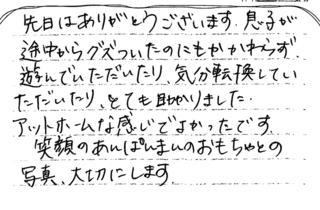 先日はありがとうございます。息子が
途中からグズついたのにもかかわらず、
遊んでいただいたり、気分転換してい
ただいたり、とても助かりました。
アットホームな感じでよかったです。
笑顔のあんぱんまんのおもちゃとの
写真、大切にします。